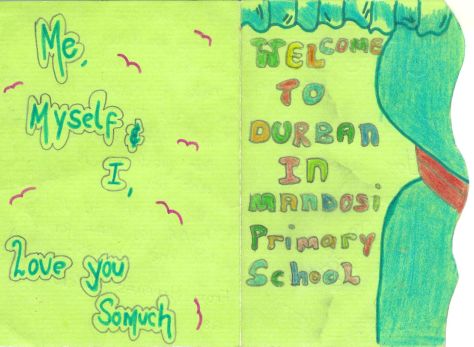 Me,
Myself &
I,
Love you
Somuch
WELCOME
TO
DURBAN
IN
MANDOSI
Primary
School